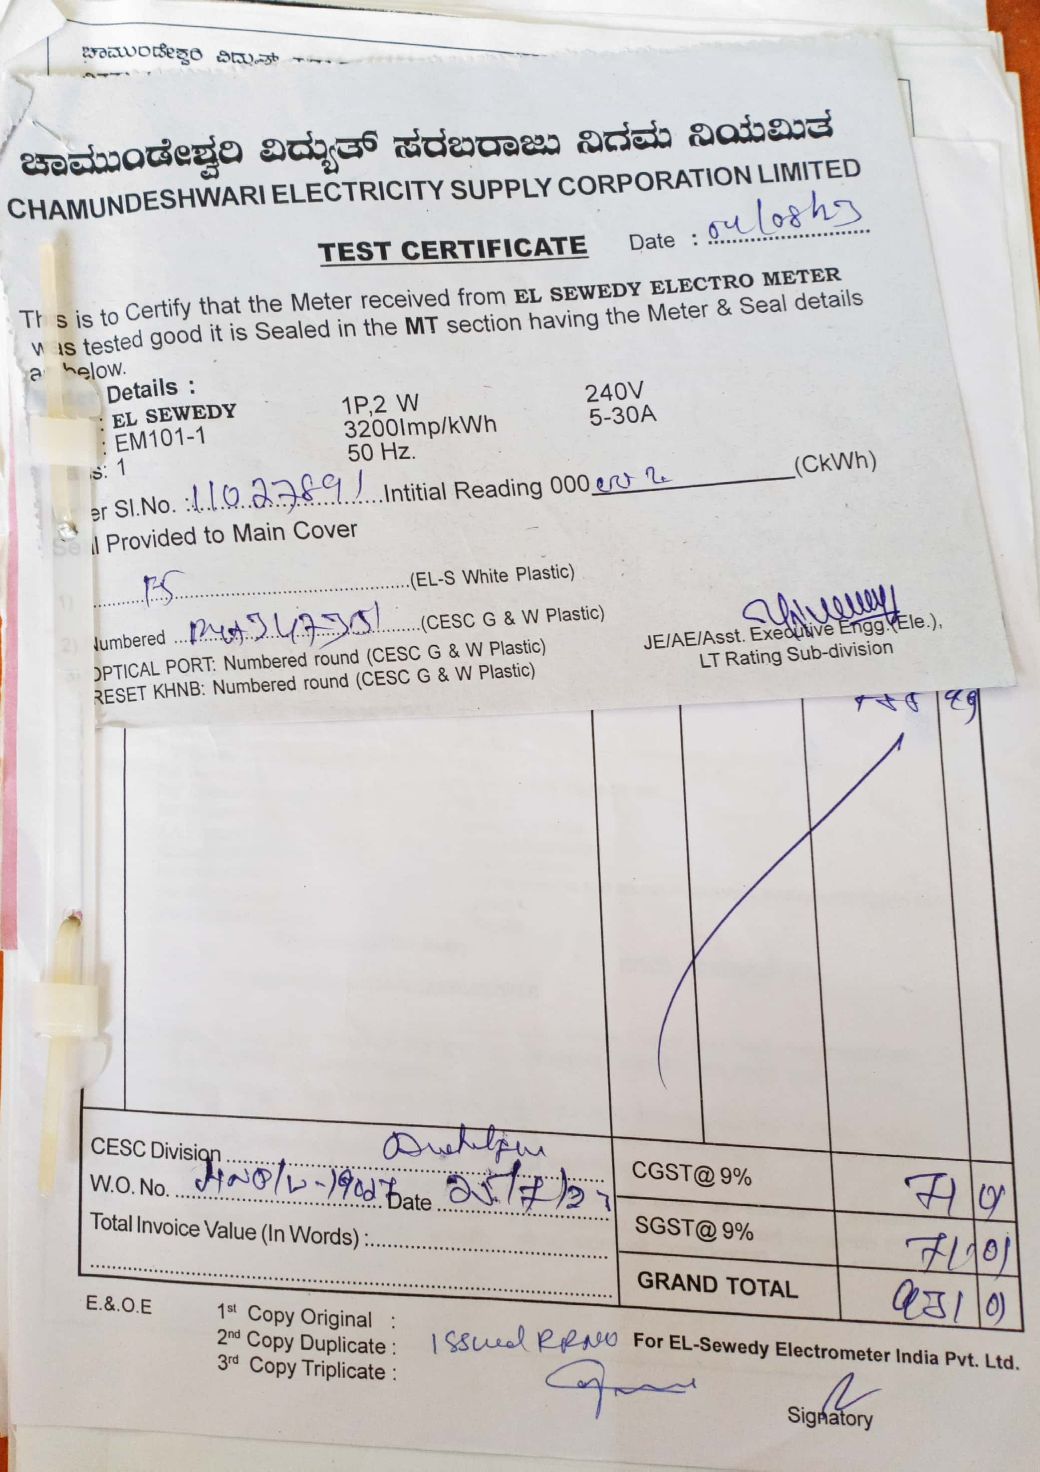 ಚಾಮುಂಡೇಶ್ವರಿ ವಿದ್ಯುತ್
ಚಾಮುಂಡೇಶ್ವರಿ ವಿದ್ಯುತ್ ಸರಬರಾಜು ನಿಗಮ ನಿಯಮಿತ
CHAMUNDESHWARI ELECTRICITY SUPPLY CORPORATION LIMITED
TEST CERTIFICATE Date : 04/08/23
This is to Certify that the Meter received from EL SEWEDY ELECTRO METER
was tested good it is Sealed in the MT section having the Meter & Seal details
as below.
Details :
: EL SEWEDY 1P,2 W 240V
: EM101-1 3200Imp/kWh 5-30A
s: 1 50 Hz.
er Sl.No. :11027891 Intitial Reading 000 (CkWh)
Seal Provided to Main Cover
1) (EL-S White Plastic)
2) Numbered (CESC G & W Plastic)
OPTICAL PORT: Numbered round (CESC G & W Plastic)
RESET KHNB: Numbered round (CESC G & W Plastic)
JE/AE/Asst. Executive Engg.(Ele.),
LT Rating Sub-division
CESC Division
W.O. No. Date 25/7/23
Total Invoice Value (In Words) :
CGST@ 9% 71
SGST@ 9% 71
GRAND TOTAL 931
E.&.O.E
1st Copy Original :
2nd Copy Duplicate : Issued RRNO For EL-Sewedy Electrometer India Pvt. Ltd.
3rd Copy Triplicate :
Signatory